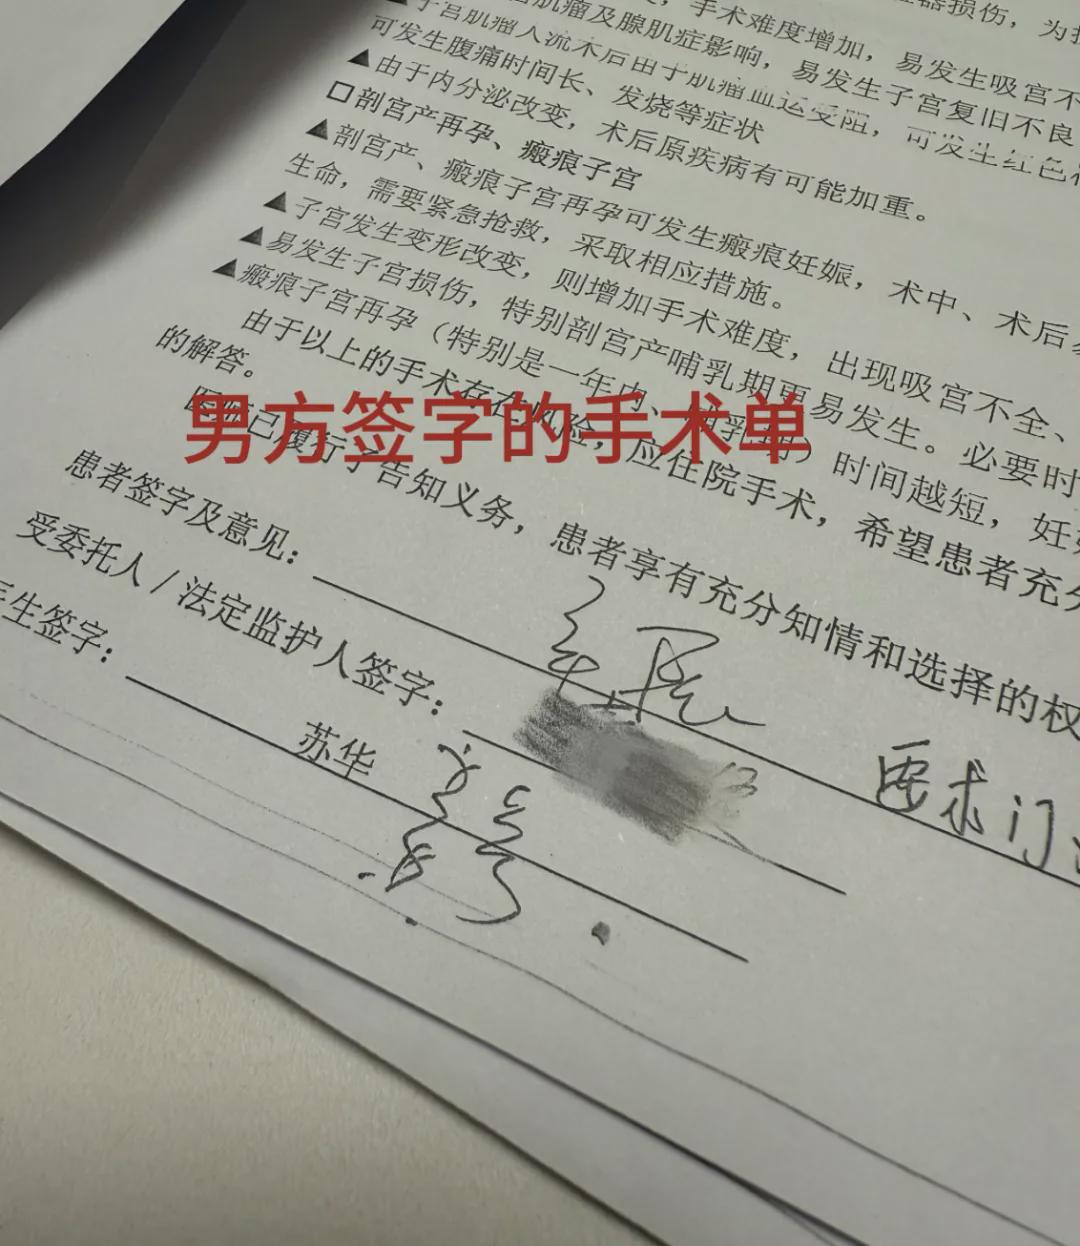 器损伤，为
肌瘤及腺肌症影响，手术难度增加，易发生吸宫不
子宫肌瘤人流术后由于肌瘤血运受阻，易发生子宫复旧不良
可发生腹痛时间长、发烧等症状
可发生红色
▲由于内分泌改变，术后原疾病有可能加重。
□剖宫产再孕、瘢痕子宫
▲剖宫产、瘢痕子宫再孕可发生瘢痕妊娠，术中、术后
生命，需要紧急抢救，采取相应措施。
▲子宫发生变形改变，则增加手术难度，出现吸宫不全、
▲易发生子宫损伤，特别剖宫产哺乳期更易发生。必要时
▲瘢痕子宫再孕（特别是一年内、哺乳期）时间越短，妊
由于以上的手术存在风险，应住院手术，希望患者充分
的解答。
医师已履行了告知义务，患者享有充分知情和选择的权
男方签字的手术单
患者签字及意见：
要求门
受委托人/法定监护人签字：
医生签字：
苏华